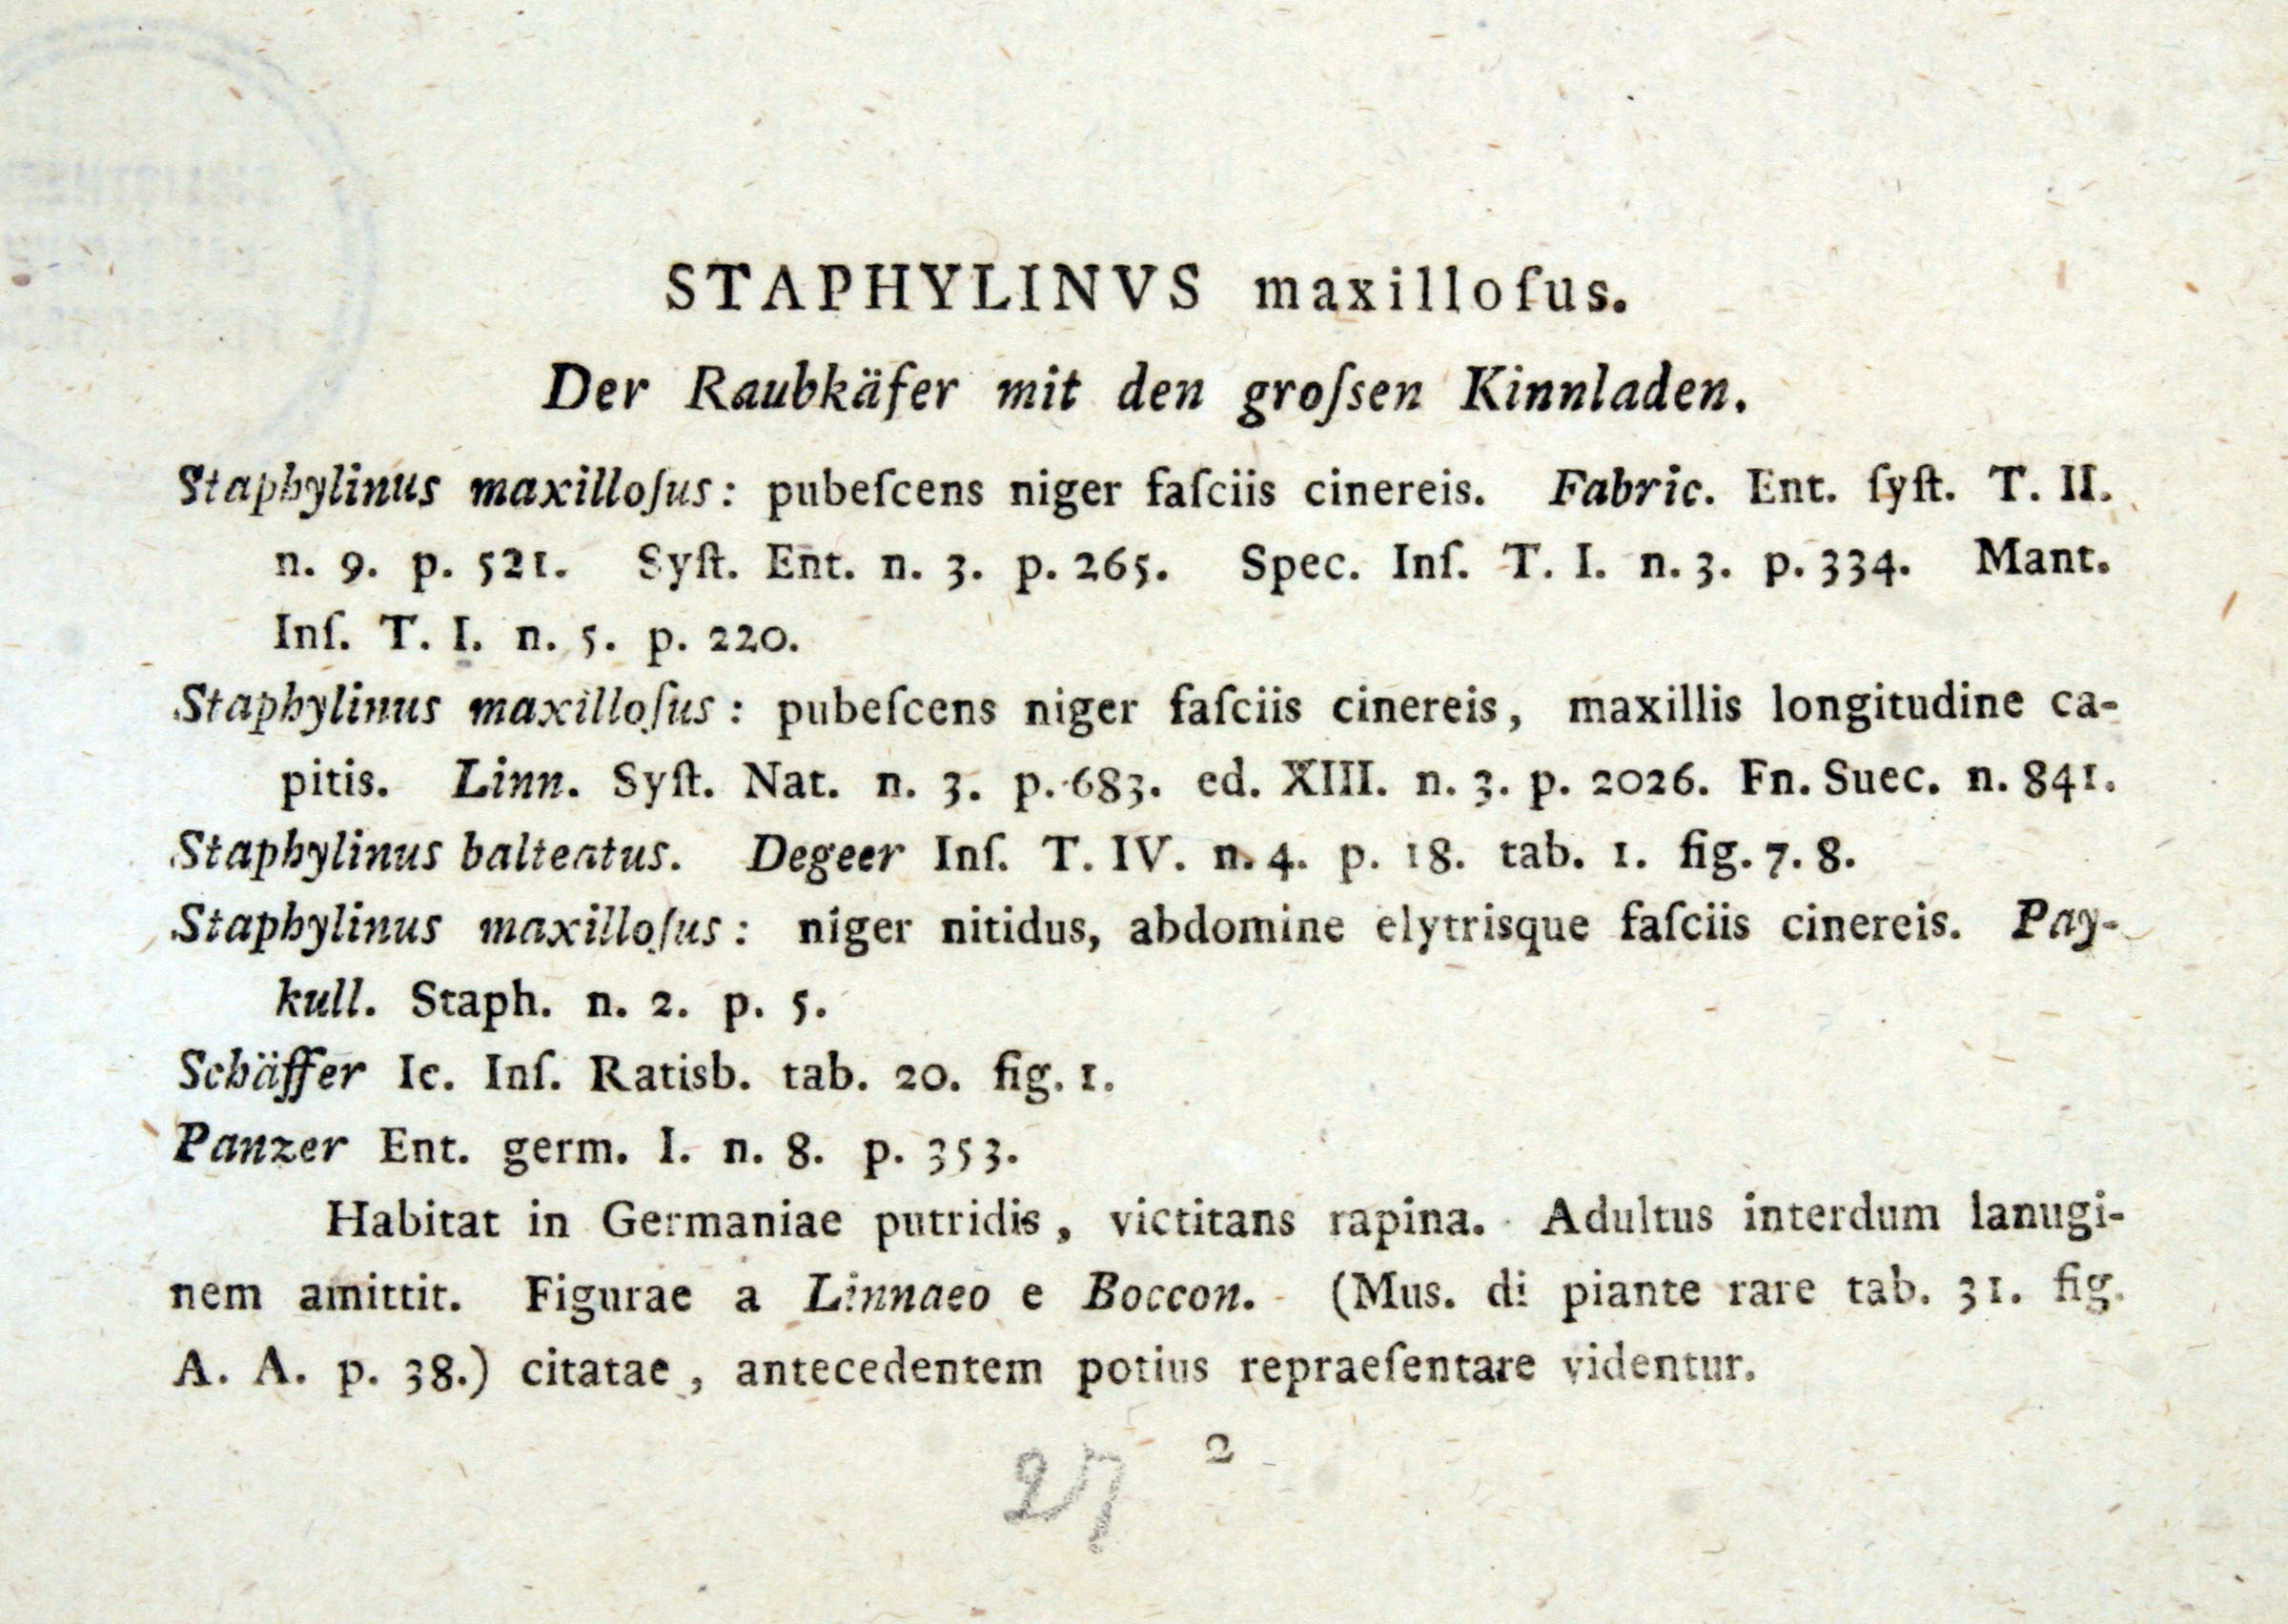 STAPHYLINVS maxilloſus.
Der Raubkäfer mit den groſsen Kinnladen.
Staphylinus maxilloſus: pubeſcens niger faſciis cinereis. Fabric. Ent. ſyſt. T. II.
n. 9. p. 521. Syſt. Ent. n. 3. p. 265. Spec. Inſ. T. I. n. 3. p. 334. Mant.
Inſ. T. I. n. 5. p. 220.
Staphylinus maxilloſus: pubeſcens niger faſciis cinereis, maxillis longitudine ca-
pitis. Linn. Syſt. Nat. n. 3. p. 683. ed. XIII. n. 3. p. 2026. Fn. Suec. n. 841.
Staphylinus balteatus. Degeer Inſ. T. IV. n. 4. p. 18. tab. 1. fig. 7. 8.
Staphylinus maxilloſus: niger nitidus, abdomine elytrisque faſciis cinereis. Pay-
kull. Staph. n. 2. p. 5.
Schäffer Ic. Inſ. Ratisb. tab. 20. fig. 1.
Panzer Ent. germ. I. n. 8. p. 353.
Habitat in Germaniae putridis, victitans rapina. Adultus interdum lanugi-
nem amittit. Figurae a Linnaeo e Boccon. (Mus. di piante rare tab. 31. fig.
A. A. p. 38.) citatae, antecedentem potius repraeſentare videntur.
27 2